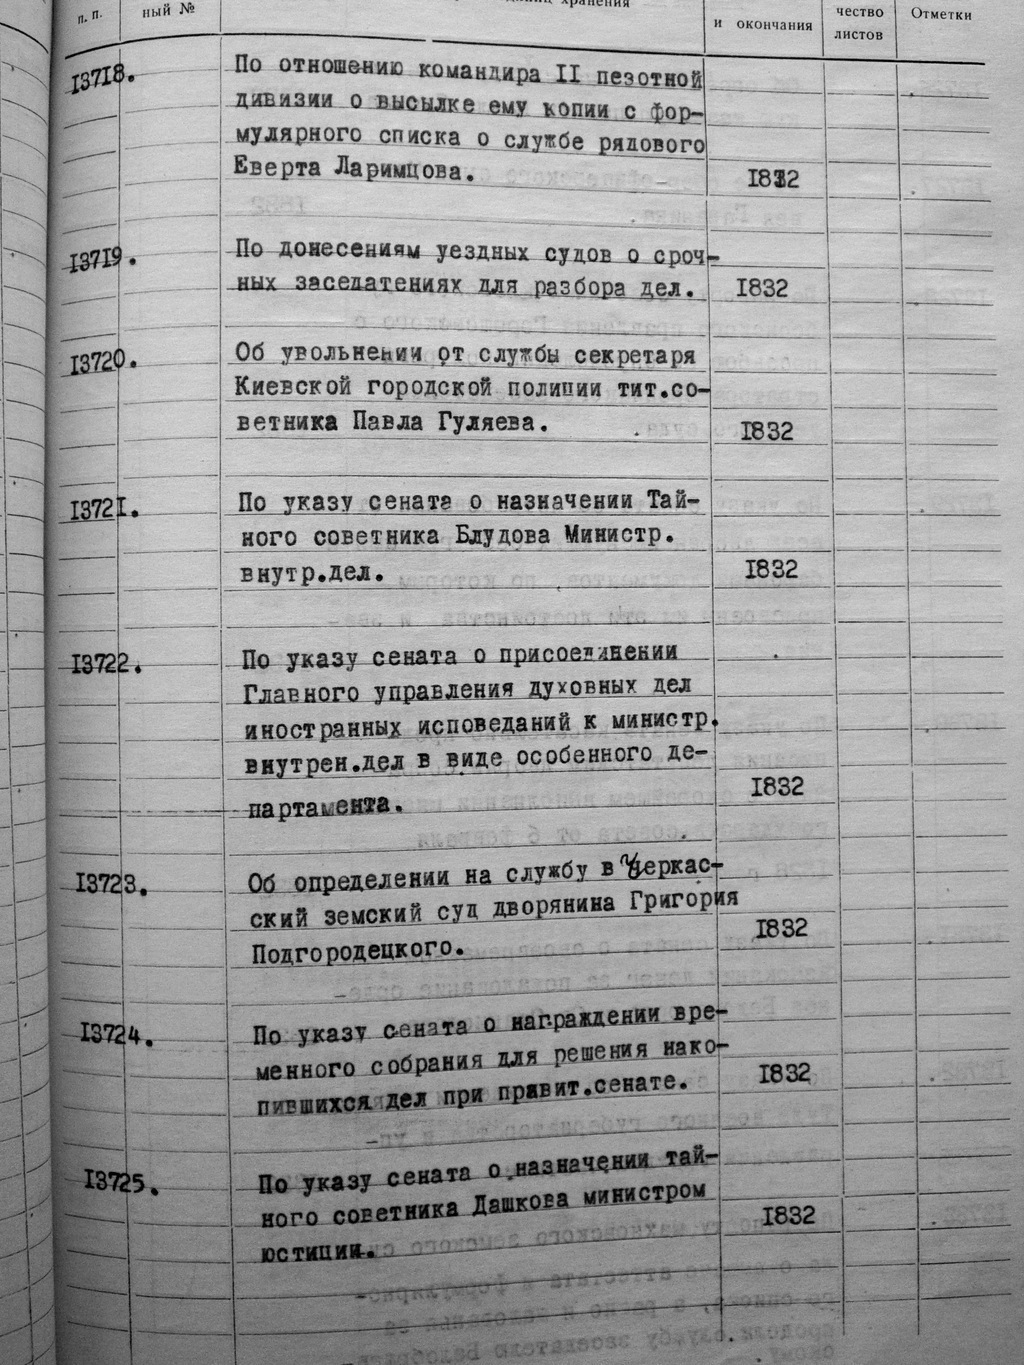 п. п. ный № хранения и окончания чество листов Отметки
13718. По отношению командира II пезотной
дивизии о высылке ему копии с фор-
мулярного списка о службе рядового
Еверта Ларимцова. 1832
13719. По донесениям уездных судов о сроч-
ных заседатениях для разбора дел. 1832
13720. Об увольнении от службы секретаря
Киевской городской полиции тит.со-
ветника Павла Гуляева. 1832
13721. По указу сената о назначении Тай-
ного советника Блудова Министр.
внутр.дел. 1832
13722. По указу сената о присоединении
Главного управления духовных дел
иностранных исповеданий к министр.
внутрен.дел в виде особенного де-
партамента. 1832
13723. Об определении на службу в Черкас-
ский земский суд дворянина Григория
Подгородецкого. 1832
13724. По указу сената о награждении вре-
менного собрания для решения нако-
пившихся дел при правит.сенате. 1832
13725. По указу сената о назначении тай-
ного советника Дашкова министром
юстиции. 1832